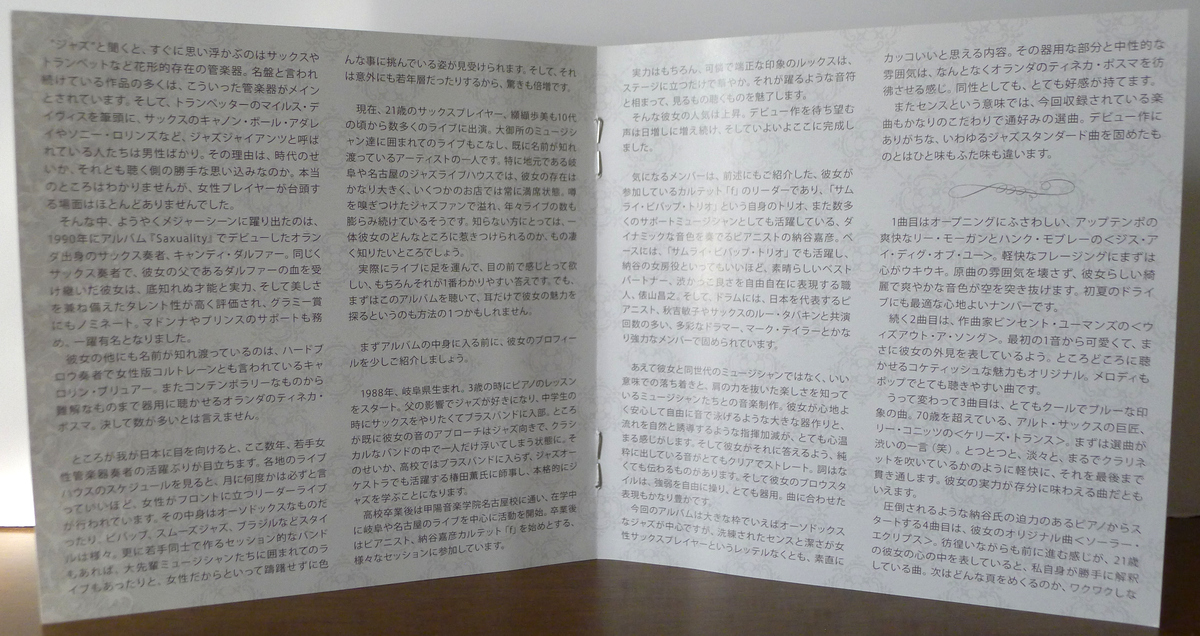 “ジャズ”と聞くと、すぐに思い浮かぶのはサックスや
トランペットなど花形的存在の管楽器。名盤と言われ
続けている作品の多くは、こういった管楽器がメイン
とされています。そして、トランペッターのマイルス・デ
イヴィスを筆頭に、サックスのキャノン・ボール・アダレ
イやソニー・ロリンズなど、ジャズジャイアンツと呼ば
れている人たちは男性ばかり。その理由は、時代のせ
いか、それとも聴く側の勝手な思い込みなのか。本当
のところはわかりませんが、女性プレイヤーが台頭す
る場面はほとんどありませんでした。
そんな中、ようやくメジャーシーンに躍り出たのは、
1990年にアルバム『Saxuality』でデビューしたオラン
ダ出身のサックス奏者、キャンディ・ダルファー。同じく
サックス奏者で、彼女の父であるダルファーの血を受
け継いだ彼女は、底知れぬ才能と実力、そして美しさ
を兼ね備えたタレント性が高く評価され、グラミー賞
にもノミネート。マドンナやプリンスのサポートも務
め、一躍有名となりました。
彼女の他にも名前が知れ渡っているのは、ハードブ
ロウ奏者で女性版コルトレーンとも言われているキャ
ロリン・ブリュアー。またコンテンポラリーなものから
難解なものまで器用に聴かせるオランダのティネカ・
ボスマ。決して数が多いとは言えません。
ところが我が日本に目を向けると、ここ数年、若手女
性管楽器奏者の活躍ぶりが目立ちます。各地のライブ
ハウスのスケジュールを見ると、月に何度かは必ずと言
っていいほど、女性がフロントに立つリーダーライブ
が行われています。その中身はオーソドックスなものだ
ったり、ビバップ、スムーズジャズ、ブラジルなどスタイ
ルは様々。更に若手同士で作るセッション的なバンド
もあれば、大先輩ミュージシャンたちに囲まれてのラ
イブもあったりと、女性だからといって躊躇せずに色
んな事に挑んでいる姿が見受けられます。そして、それ
は意外にも若年層だったりするから、驚きも倍増です。
現在、21歳のサックスプレイヤー。纐纈歩美も10代
の頃から数多くのライブに出演。大御所のミュージシ
ャン達に囲まれてのライブもこなし、既に名前が知れ
渡っているアーティストの一人です。特に地元である岐
阜や名古屋のジャズライブハウスでは、彼女の存在は
かなり大きく、いくつかのお店では常に満席状態。噂
を嗅ぎつけたジャズファンで溢れ、年々ライブの数も
膨らみ続けているそうです。知らない方にとっては、一
体彼女のどんなところに惹きつけられるのか。もの凄
く知りたいところでしょう。
実際にライブに足を運んで、目の前で感じとって欲
しい、もちろんそれが1番わかりやすい答えです。でも、
まずはこのアルバムを聴いて、耳だけで彼女の魅力を
探るというのも方法の1つかもしれません。
まずアルバムの中身に入る前に、彼女のプロフィー
ルを少しご紹介しましょう。
1988年、岐阜県生まれ。3歳の時にピアノのレッスン
をスタート。父の影響でジャズが好きになり、中学生の
時にサックスをやりたくてブラスバンドに入部。ところ
が既に彼女の音のアプローチはジャズ向きで、クラシ
カルなバンドの中で一人だけ浮いてしまう状態に。そ
のせいか、高校ではブラスバンドに入らず、ジャズオー
ケストラでも活躍する椿田薫氏に師事し、本格的にジ
ャズを学ぶことになります。
高校卒業後は甲陽音楽学院名古屋校に通い、在学中
に岐阜や名古屋のライブを中心に活動を開始。卒業後
はピアニスト、納谷嘉彦カルテット「f」を始めとする、
様々なセッションに参加しています。
実力はもちろん、可憐で端正な印象のルックスは、
ステージに立つだけで華やか。それが躍るような音符
と相まって、見るもの聴くものを魅了します。
そんな彼女の人気は上昇。デビュー作を待ち望む
声は日増しに増え続け、そしていよいよここに完成し
ました。
気になるメンバーは、前述にもご紹介した、彼女が
参加しているカルテット「f」のリーダーであり、「サム
ライ・ビバップ・トリオ」という自身のトリオ、また数多
くのサポートミュージシャンとしても活躍している、ダ
イナミックな音色を奏でるピアニストの納谷嘉彦。ベ
ースには、「サムライ・ビバップ・トリオ」でも活躍し、
納谷の女房役といってもいいほど、素晴らしいベスト
パートナー、渋かっこ良さを自由自在に表現する職
人、俵山昌之。そして、ドラムには、日本を代表するピ
アニスト、秋吉敏子やサックスのルー・タバキンと共演
回数の多い、多彩なドラマー、マーク・テイラーとかな
り強力なメンバーで固められています。
あえて彼女と同世代のミュージシャンではなく、いい
意味での落ち着きと、肩の力を抜いた楽しさを知って
いるミュージシャンたちとの音楽制作。彼女が心地よ
く安心して自由に音で泳げるような大きな器作りと、
流れを自然と誘導するような指揮加減が、とても心温
まる感じがします。そして彼女がそれに答えるよう、純
粋に出している音がとてもクリアでストレート。詞はな
くても伝わるものがあります。そして彼女のブロウスタ
イルは、強弱を自由に操り、とても器用。曲に合わせた
表現もかなり豊かです。
今回のアルバムは大きな枠でいえばオーソドックス
なジャズが中心ですが、洗練されたセンスと潔さが女
性サックスプレイヤーというレッテルなくとも、素直に
カッコいいと思える内容。その器用な部分と中性的な
雰囲気は、なんとなくオランダのティネカ・ボスマを彷
彿させる感じ。同性としても、とても好感が持てます。
またセンスという意味では、今回収録されている楽
曲もかなりのこだわりで通好みの選曲。デビュー作に
ありがちな、いわゆるジャズスタンダード曲を固めたも
のとはひと味もふた味も違います。
1曲目はオープニングにふさわしい、アップテンポの
爽快なリー・モーガンとハンク・モブレーの<ジス・ア
イ・ディグ・オブ・ユー>。軽快なフレージングにまずは
心がウキウキ。原曲の雰囲気を壊さず、彼女らしい綺
麗で爽やかな音色が空を突き抜けます。初夏のドライ
ブにも最適な心地よいナンバーです。
続く2曲目は、作曲家ビンセント・ユーマンズの<ウ
ィズアウト・ア・ソング>。最初の1音から可愛くて、ま
さに彼女の外見を表しているよう。ところどころに聴
かせるコケティッシュな魅力もオリジナル。メロディも
ポップでとても聴きやすい曲です。
うって変わって3曲目は、とてもクールでブルーな印
象の曲。70歳を超えている、アルト・サックスの巨匠、
リー・コニッツの<ケリーズ・トランス>。まずは選曲が
渋いの一言(笑)。とつとつと、淡々と、まるでクラリネ
ットを吹いているかのように軽快に、それを最後まで
貫き通します。彼女の実力が存分に味わえる曲だとも
いえます。
圧倒されるような納谷氏の迫力のあるピアノからス
タートする4曲目は、彼女のオリジナル曲<ソーラー・
エクリプス>。彷徨いながらも前に進む感じが、21歳
の彼女の心の中を表していると、私自身が勝手に解釈
している曲。次はどんな頁をめくるのか、ワクワクしな